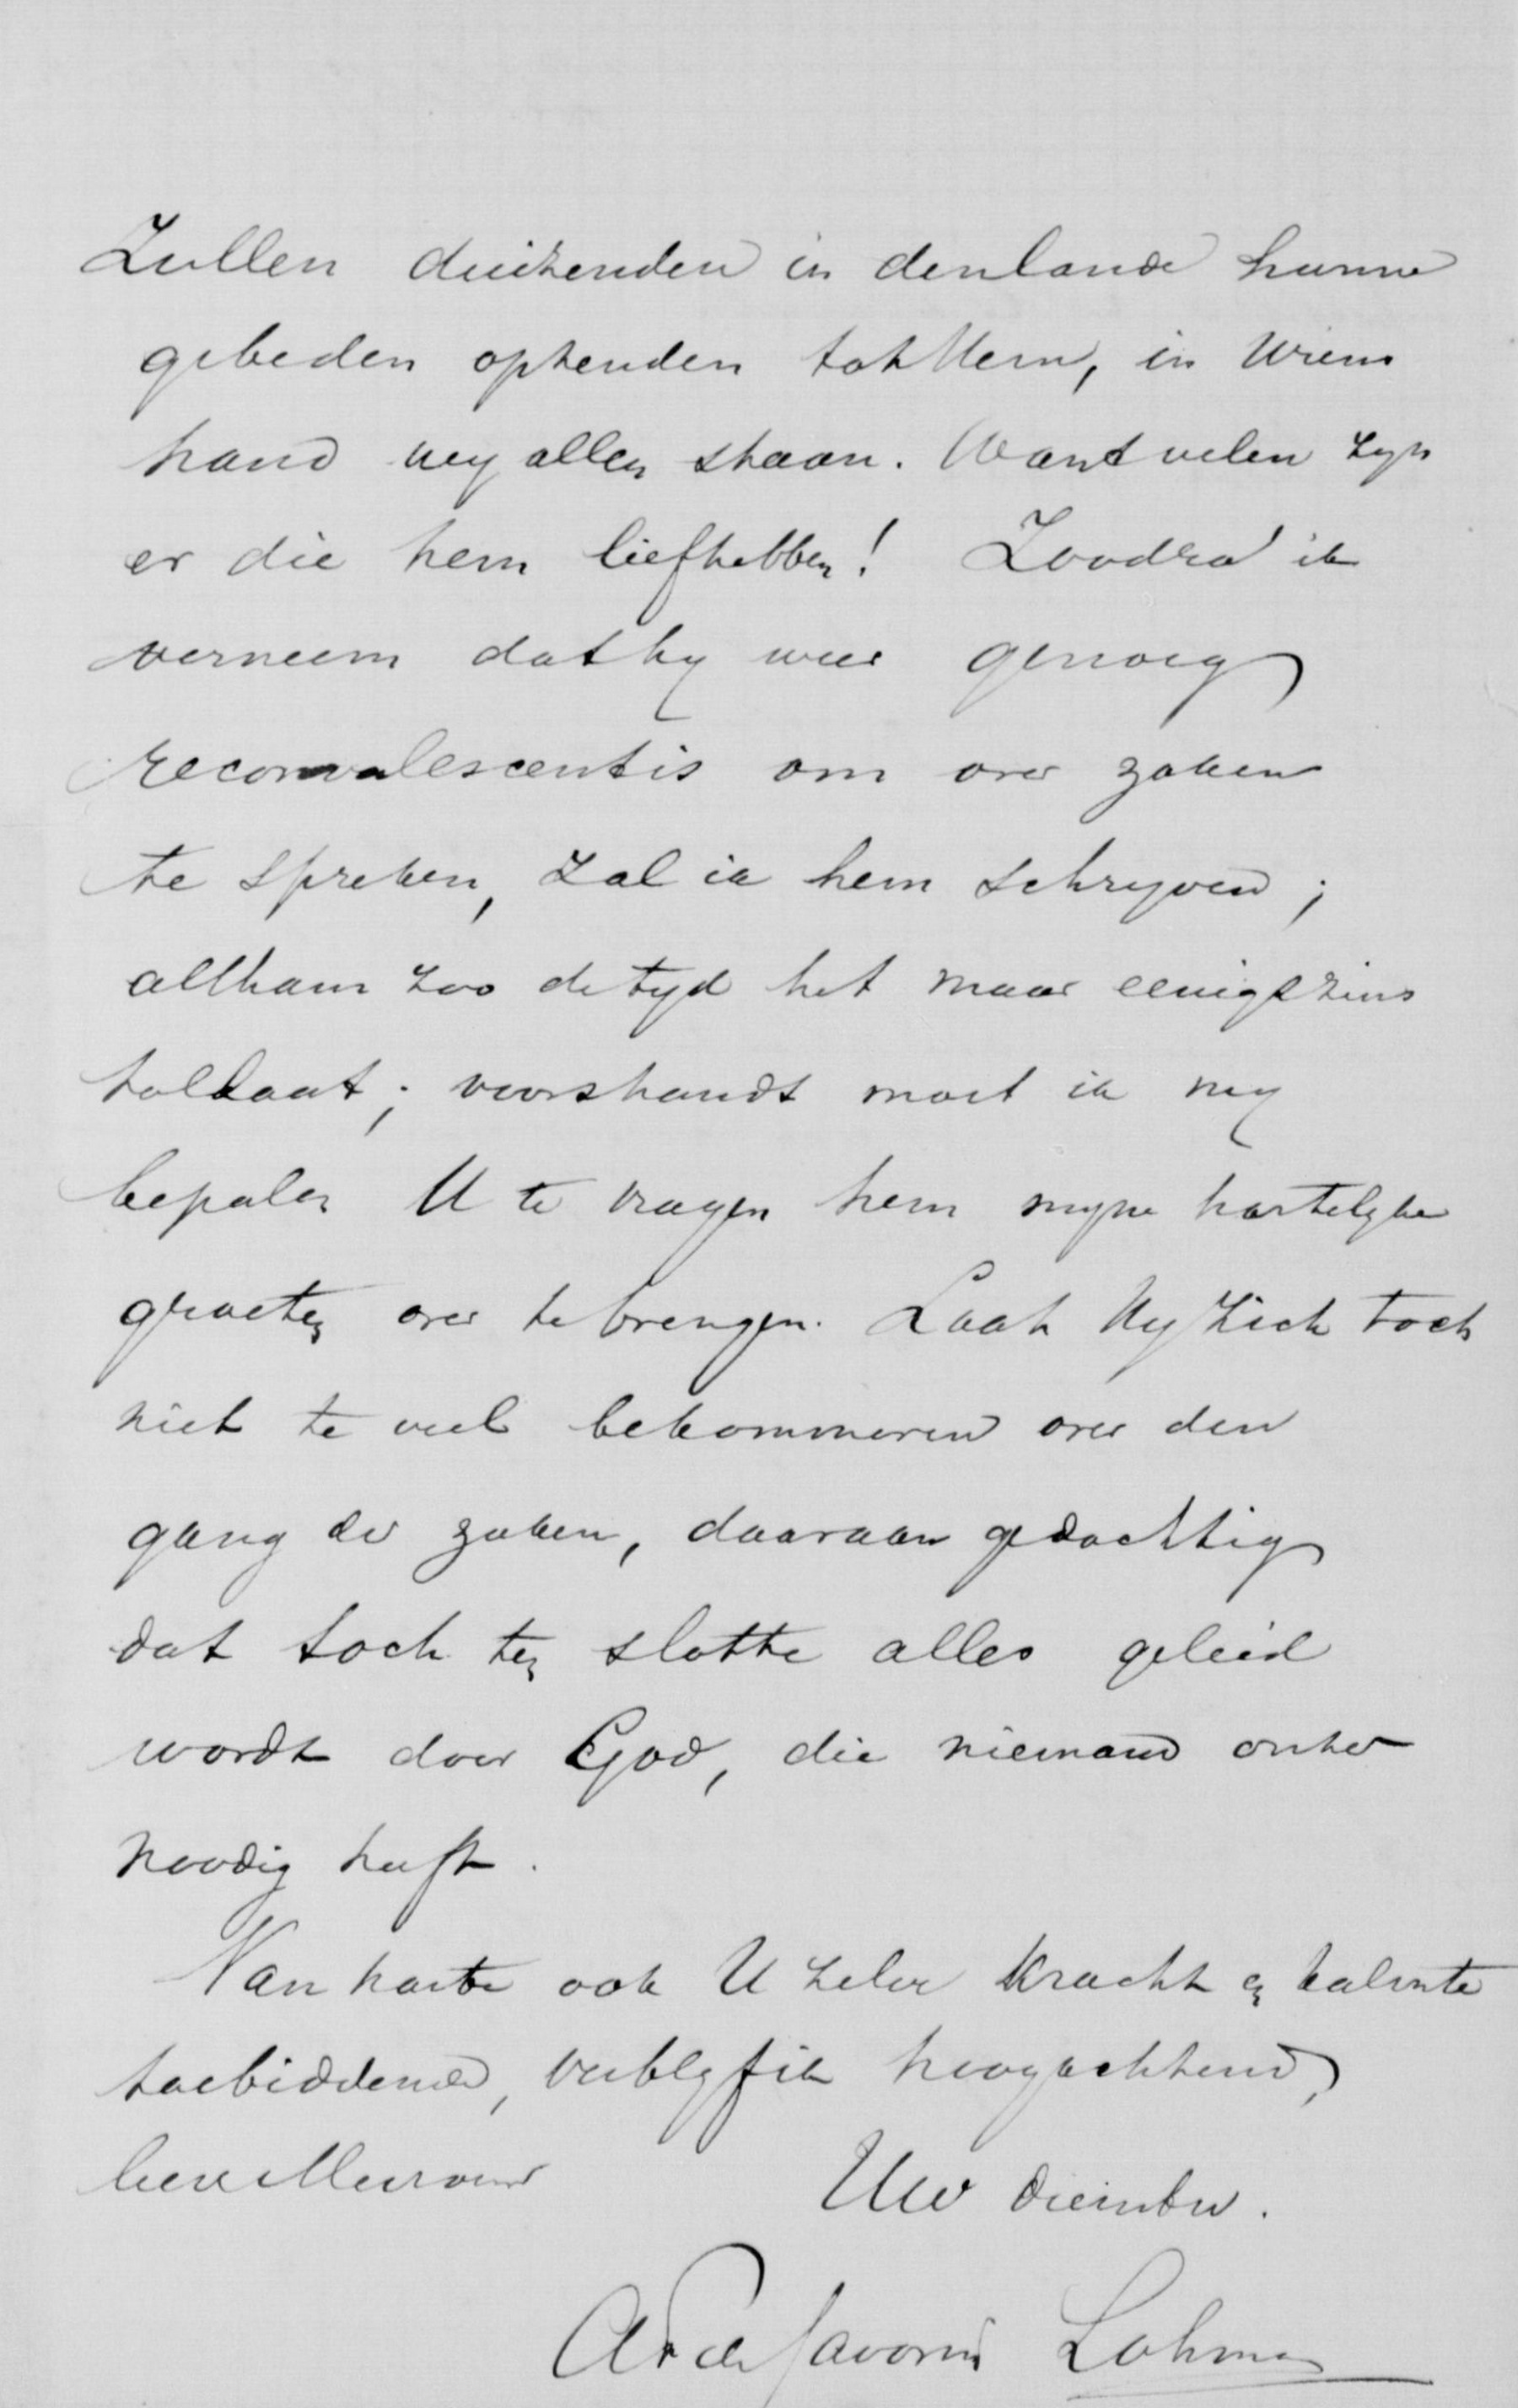 Zullen duizenden in den lande hunne
gebeden opzenden tot Hem, in Wiens
hand wy allen staan. Want velen zyn
er die hem liefhebben! Zoodra ik
verneem dat hy weer genoeg
reconvalescent is om over zaken
te spreken, zal ik hem schryven;
althans zoo de tyd het maar eenigszins
toelaat; voorshands moet ik my
bepalen U te vragen hem myne hartelyke
groeten over te brengen. Laat Hy zich toch
niet te veel bekommeren over den
gang der zaken, daaraan gedachtig
dat toch ten slotte alles geleid
wordt door God, die niemand onzer
noodig heeft.
Van harte ook U zelve kracht en kalmte
toebiddende, verblyf ik hoogachtend,
lieve Mevrouw
Uw dienstw.
AF de Savornin Lohman